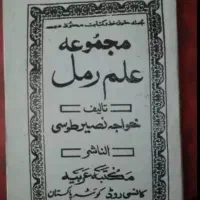 مجموعه
علم رمل
تالیف
خواجہ نصیر طوسی
الناشر
مکتبہ عربیہ
کانسی روڈ کوئٹہ پاکستان